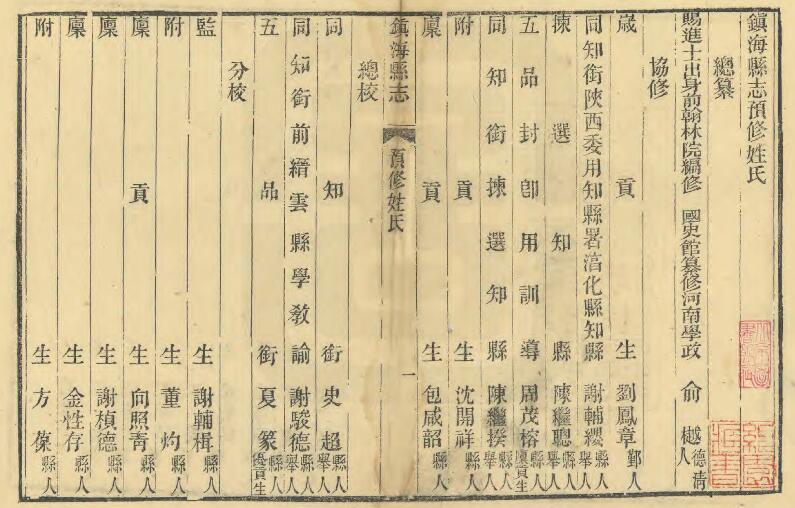 鎮海縣志預修姓氏
總纂
賜進士出身前翰林院編修 國史館纂修河南學政 俞樾 德清人
協修
歲貢生 劉鳳章 鄞人
同知銜陝西委用知縣署淳化縣知縣 謝輔纓 縣人舉人
揀選知縣 陳繼聰 縣人舉人
五品封卽用訓導 周茂榕 縣人優貢生
同知銜揀選知縣 陳繼揆 縣人舉人
附貢生 沈開祥 縣人
廩貢生 包咸韶 縣人
鎮海縣志 預修姓氏 一
總校
同知銜 史超 縣人
同知銜前縉雲縣學敎諭 謝駿德 縣人舉人
五品銜 夏篆 縣人優貢生
分校
監生 謝輔楫 縣人
附生 董灼 縣人
廩貢生 向照青 縣人
廩生 謝楨德 縣人
廩生 金性存 縣人
附生 方葆 縣人